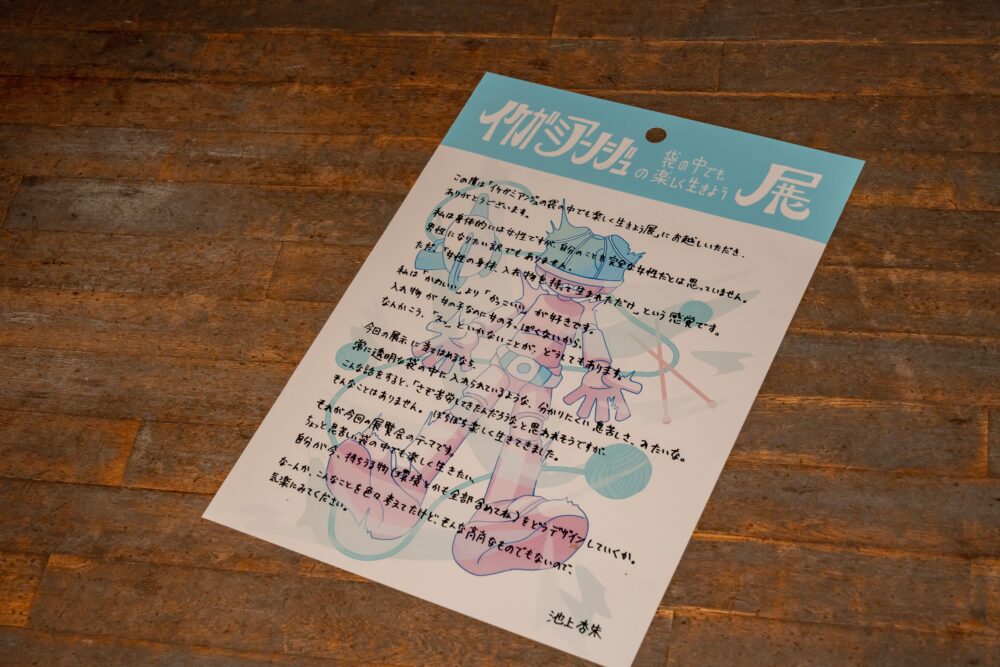 イケガミアンジュの
袋の中でも
楽しく生きよう
展
この度は「イケガミアンジュの袋の中でも楽しく生きよう展」にお越しいただき、
ありがとうございます。
私は身体的には女性ですが、自分のことを完全な女性だとは思っていません。
男性になりたい訳でもありません。
ただ、「女性の身体、入れ物を持って生まれただけ」という感覚です。
私は「かわいい」より「かっこいい」が好きです。
入れ物が女の子なのに女の子っぽくないから、
なんかこう、「スッ」といかないことが、どうしてもあります。
今回の展示に当てはめるなら
常に透明な袋の中に入れられているような、分かりにくい息苦しさ、みたいな。
こんな話をすると、「さぞ苦労してきたんだろうな」と思われそうですが、
そんなことはありません。ぼちぼち楽しく生きてきました。
それが今回の展覧会のテーマです。
ちょっと息苦しい袋の中でも楽しく生きたい、
自分が今、持ちうる物(環境とかも全部含めてね)をどうデザインしていくか。
なーんか、こんなことを色々考えてたけど、そんな高尚なものでもないので、
気楽にみてください。
池上杏朱